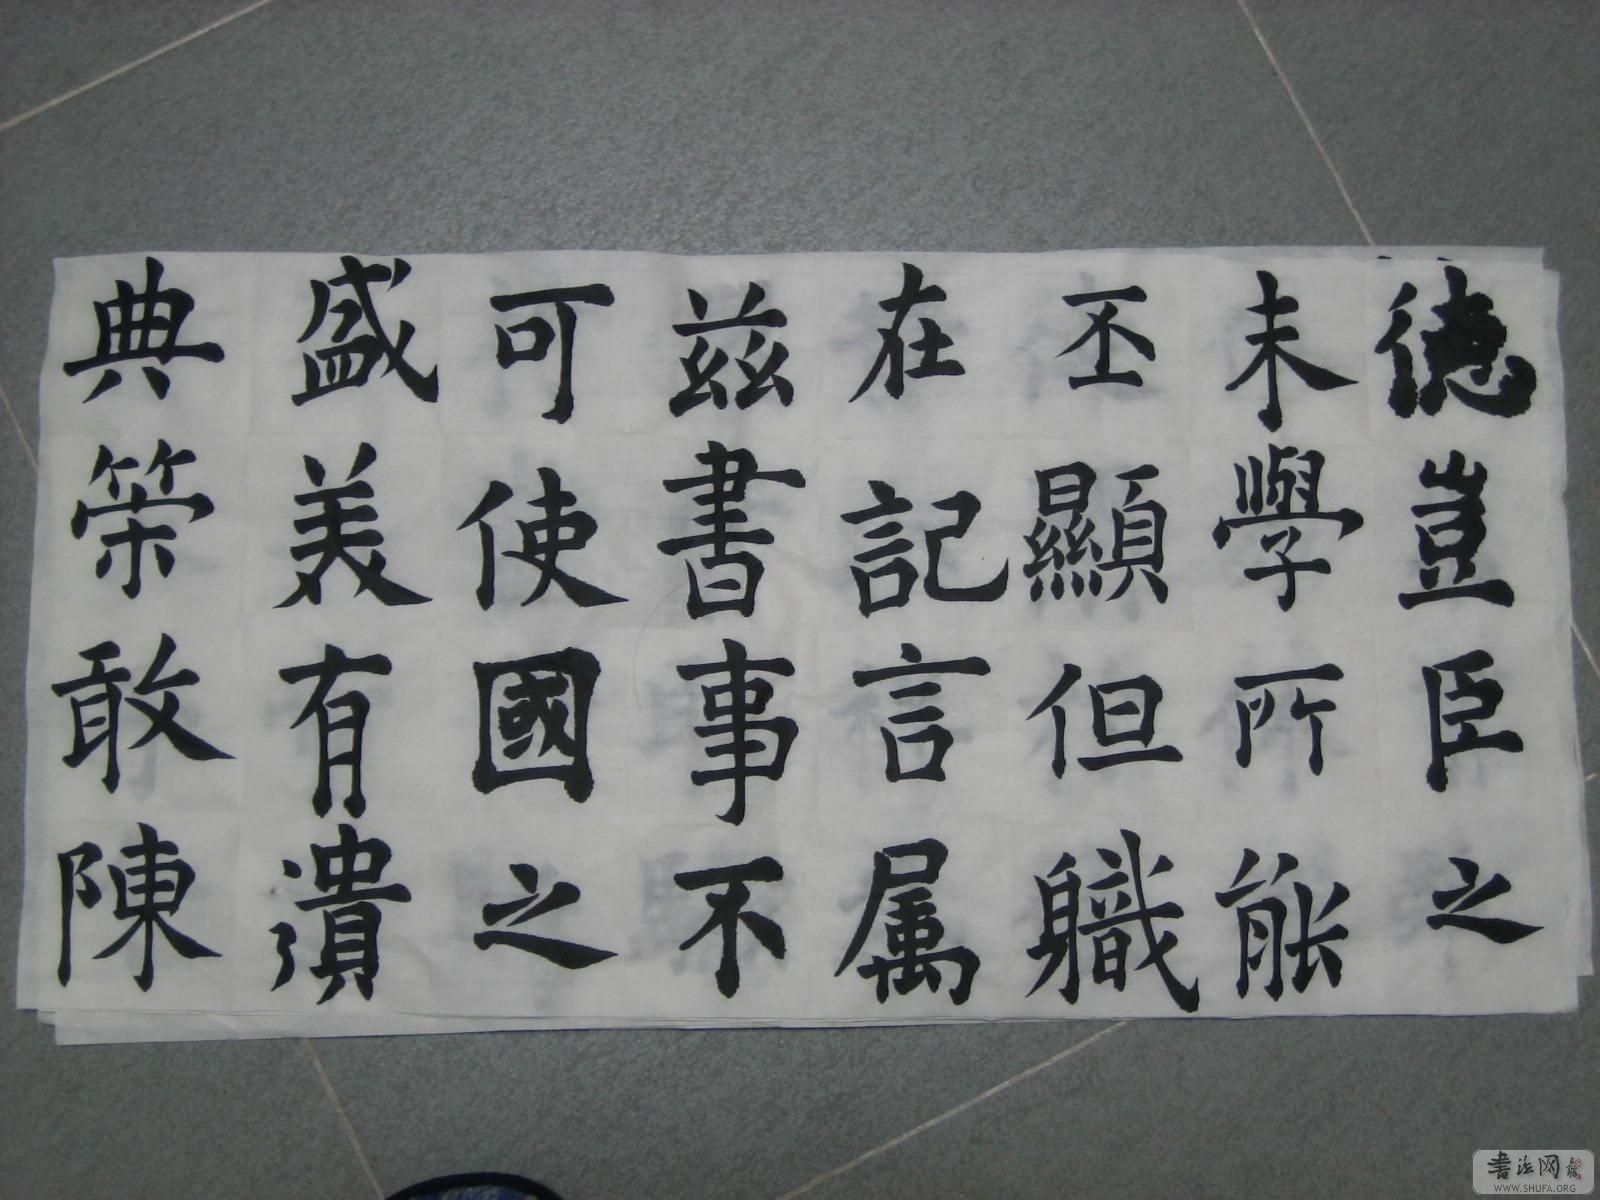 德豈臣之
末學所能
丕顯但職
在記言属
兹書事不
可使國之
盛美有遺
典策敢陳
書法网
WWW.SHUFA.ORG